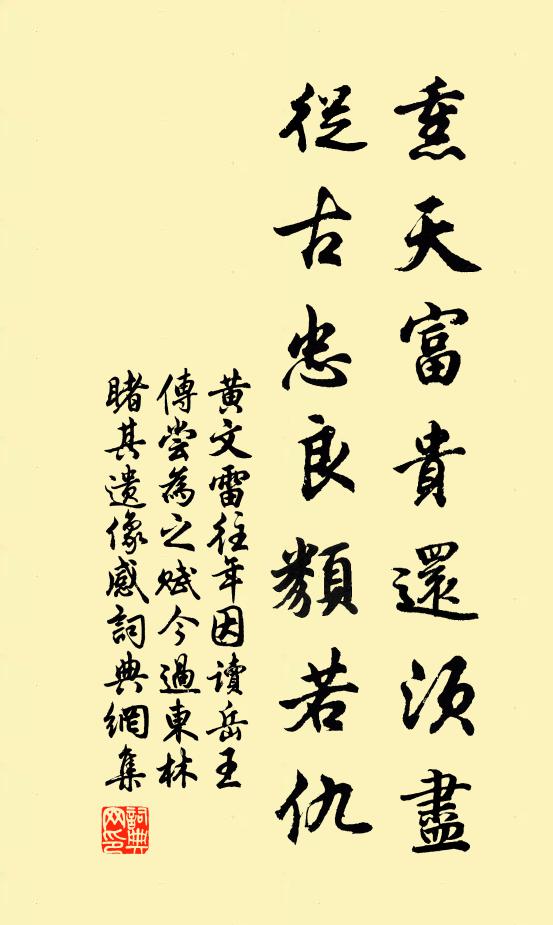 熏天富貴還須盡
從古忠良類若仇
黄文雷往年因讀岳王
傳嘗為之賦今過東林
睹其遺像感詞典網集
詞典網印